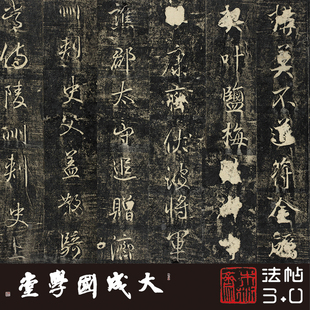 構莫不道符金礪
契叶鹽梅
康齊伏波將軍
譙郡太守追贈濟
州刺史父蓋散騎
常侍陵州刺史上
大成國學堂
法帖
3.0